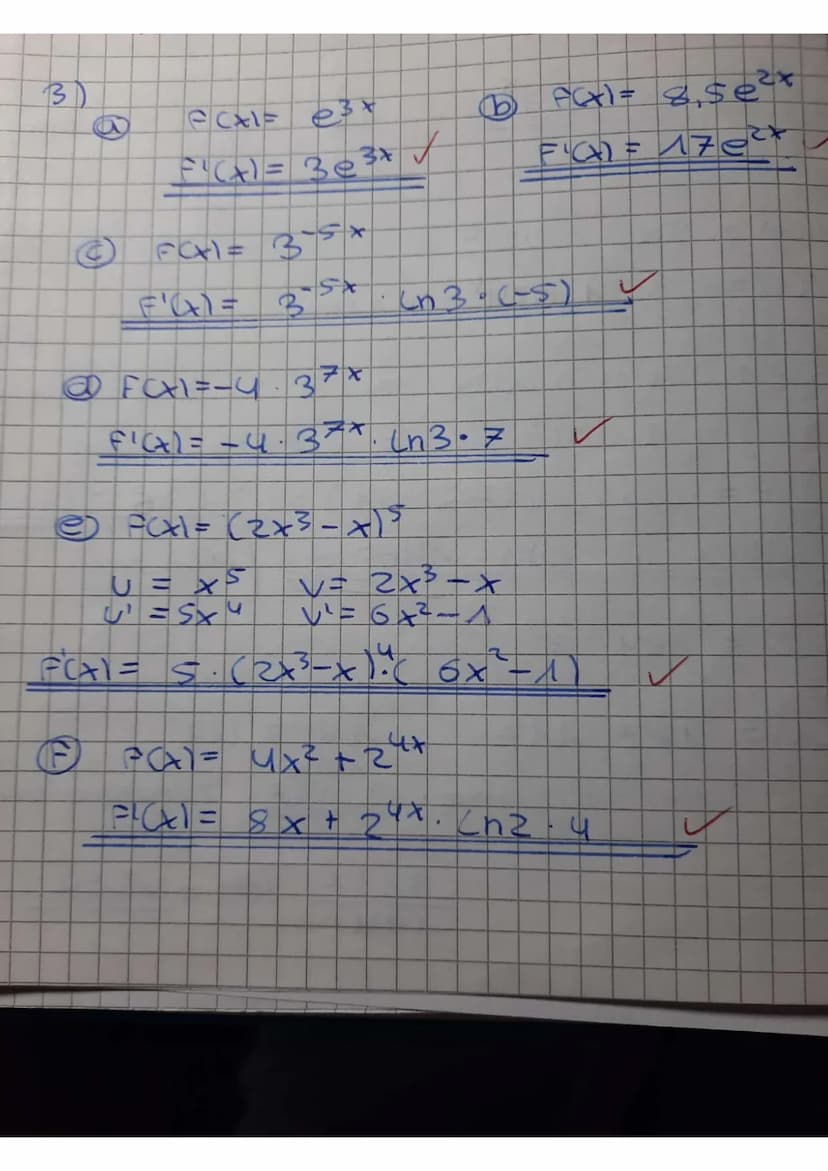 3)
a) f(x) = e^{3x}
f'(x) = 3e^{3x} ✓
b) f(x) = 8,5e^{2x}
f'(x) = 17e^{2x} ✓
c) f(x) = 3^{-5x}
f'(x) = 3^{-5x} · ln3 · (-5) ✓
d) f(x) = -4 · 3^{7x}
f'(x) = -4 · 3^{7x} · ln3 · 7 ✓
e) f(x) = (2x³ - x)⁵
u = x⁵ v = 2x³ - x
u' = 5x⁴ v' = 6x² - 1
f'(x) = 5 · (2x³ - x)⁴ · (6x² - 1) ✓
f) f(x) = 4x² + 2^{4x}
f'(x) = 8x + 2^{4x} · ln2 · 4 ✓